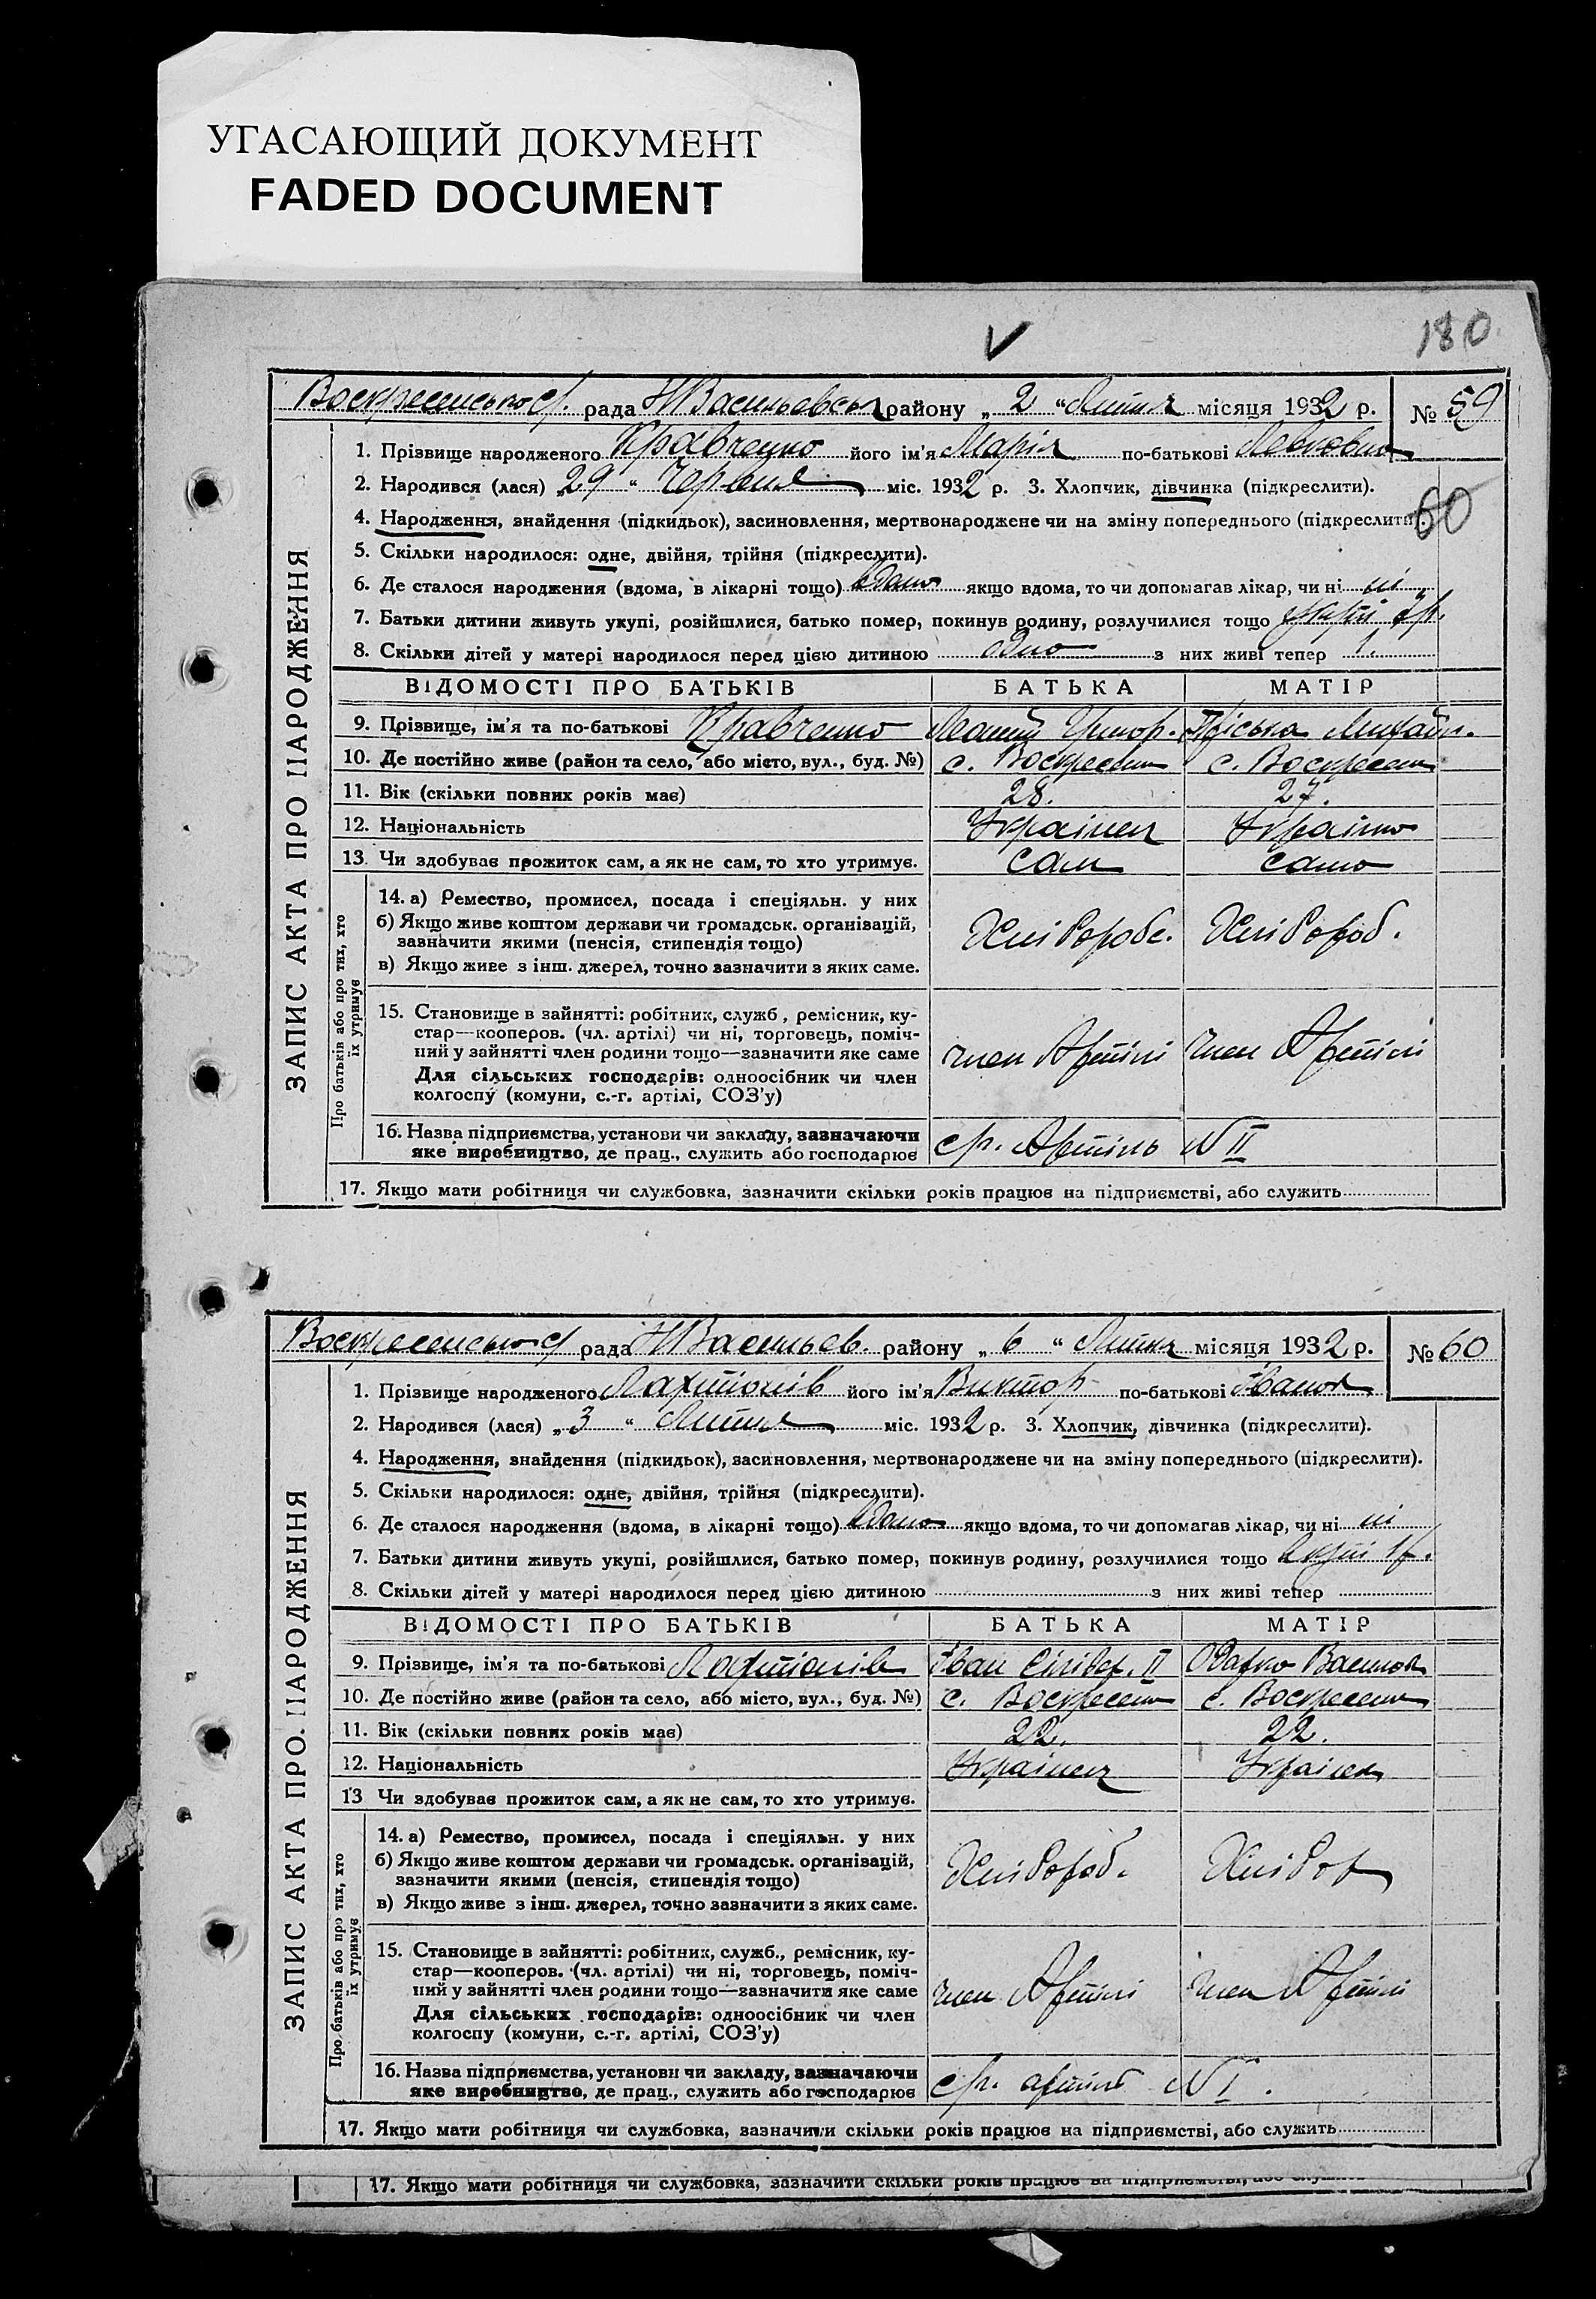 УГАСАЮЩИЙ ДОКУМЕНТ
FADED DOCUMENT
180
рада НВасильевськ району „ 2 “ Липня місяця 1932 р. № 59
ЗАПИС АКТА ПРО НАРОДЖЕННЯ
1. Прізвище народженого Кравченко його ім'я Марія по-батькові
2. Народився (лася) „29“ Червня міс. 1932 р. 3. Хлопчик, дівчинка (підкреслити).
4. Народження, знайдення (підкидьок), засиновлення, мертвонароджене чи на зміну попереднього (підкреслити).
60
5. Скільки народилося: одне, двійня, трійня (підкреслити).
6. Де сталося народження (вдома, в лікарні тощо) вдома якщо вдома, то чи допомагав лікар, чи ні ні
7. Батьки дитини живуть укупі, розійшлися, батько помер, покинув родину, розлучилися тощо
8. Скільки дітей у матері народилося перед цією дитиною одно з них живі тепер 1.
ВІДОМОСТІ ПРО БАТЬКІВ БАТЬКА МАТІР
9. Прізвище, ім'я та по-батькові Кравченко Григор. Пріська Михайл.
10. Де постійно живе (район та село, або місто, вул., буд. №) с. Воскресен с. Воскресен
11. Вік (скільки повних років має) 28. 27.
12. Національність Українец Українка
13. Чи здобував прожиток сам, а як не сам, то хто утримує. Сам сама
Про батьків або про тих, хто
їх утримує
14. а) Ремество, промисел, посада і спеціяльн. у них
б) Якщо живе коштом держави чи громадськ. організацій,
зазначити якими (пенсія, стипендія тощо)
в) Якщо живе з інш. джерел, точно зазначити з яких саме.
Хліборобс. Хлібороб.
15. Становище в зайнятті: робітник, служб, ремісник, ку-
стар—кооперов. (чл. артілі) чи ні, торговець, поміч-
ний у зайнятті член родини тощо—зазначити яке саме
Для сільських господарів: одноосібник чи член
колгоспу (комуни, с.-г. артілі, СОЗ'у)
член Артілі член Артілі
16. Назва підприємства, установи чи закладу, зазначаючи
яке виробництво, де прац., служить або господарює
Артіль № II
17. Якщо мати робітниця чи службовка, зазначити скільки років працює на підприємстві, або служить
рада НВасильев. району „ 6 “ Липня місяця 1932 р. № 60
ЗАПИС АКТА ПРО НАРОДЖЕННЯ
1. Прізвище народженого Лахтіонів його ім'я Виктор по-батькові Іванов
2. Народився (лася) „3“ Липня міс. 1932 р. 3. Хлопчик, дівчинка (підкреслити).
4. Народження, знайдення (підкидьок), засиновлення, мертвонароджене чи на зміну попереднього (підкреслити).
5. Скільки народилося: одне, двійня, трійня (підкреслити).
6. Де сталося народження (вдома, в лікарні тощо) вдома якщо вдома, то чи допомагав лікар, чи ні ні
7. Батьки дитини живуть укупі, розійшлися, батько помер, покинув родину, розлучилися тощо
8. Скільки дітей у матері народилося перед цією дитиною з них живі тепер
ВІДОМОСТІ ПРО БАТЬКІВ БАТЬКА МАТІР
9. Прізвище, ім'я та по-батькові Лахтіонів Іван II Одарка
10. Де постійно живе (район та село, або місто, вул., буд. №) с. Воскресен с. Воскресен
11. Вік (скільки повних років має) 22. 22.
12. Національність Українец Українка
13 Чи здобував прожиток сам, а як не сам, то хто утримує.
Про батьків або про тих, хто
їх утримує
14. а) Ремество, промисел, посада і спеціяльн. у них
б) Якщо живе коштом держави чи громадськ. організацій,
зазначити якими (пенсія, стипендія тощо)
в) Якщо живе з інш. джерел, точно зазначити з яких саме.
Хлібороб. Хлібор
15. Становище в зайнятті: робітник, служб., ремісник, ку-
стар—кооперов. (чл. артілі) чи ні, торговець, поміч-
ний у зайнятті член родини тощо—зазначити яке саме
Для сільських господарів: одноосібник чи член
колгоспу (комуни, с.-г. артілі, СОЗ'у)
член Артілі член Артілі
16. Назва підприємства, установи чи закладу, зазначаючи
яке виробництво, де прац., служить або господарює
артіль № I.
17. Якщо мати робітниця чи службовка, зазначити скільки років працює на підприємстві, або служить
17. Якщо мати робітниця чи службовка, зазначити скільки років працює на підприємстві, або служить